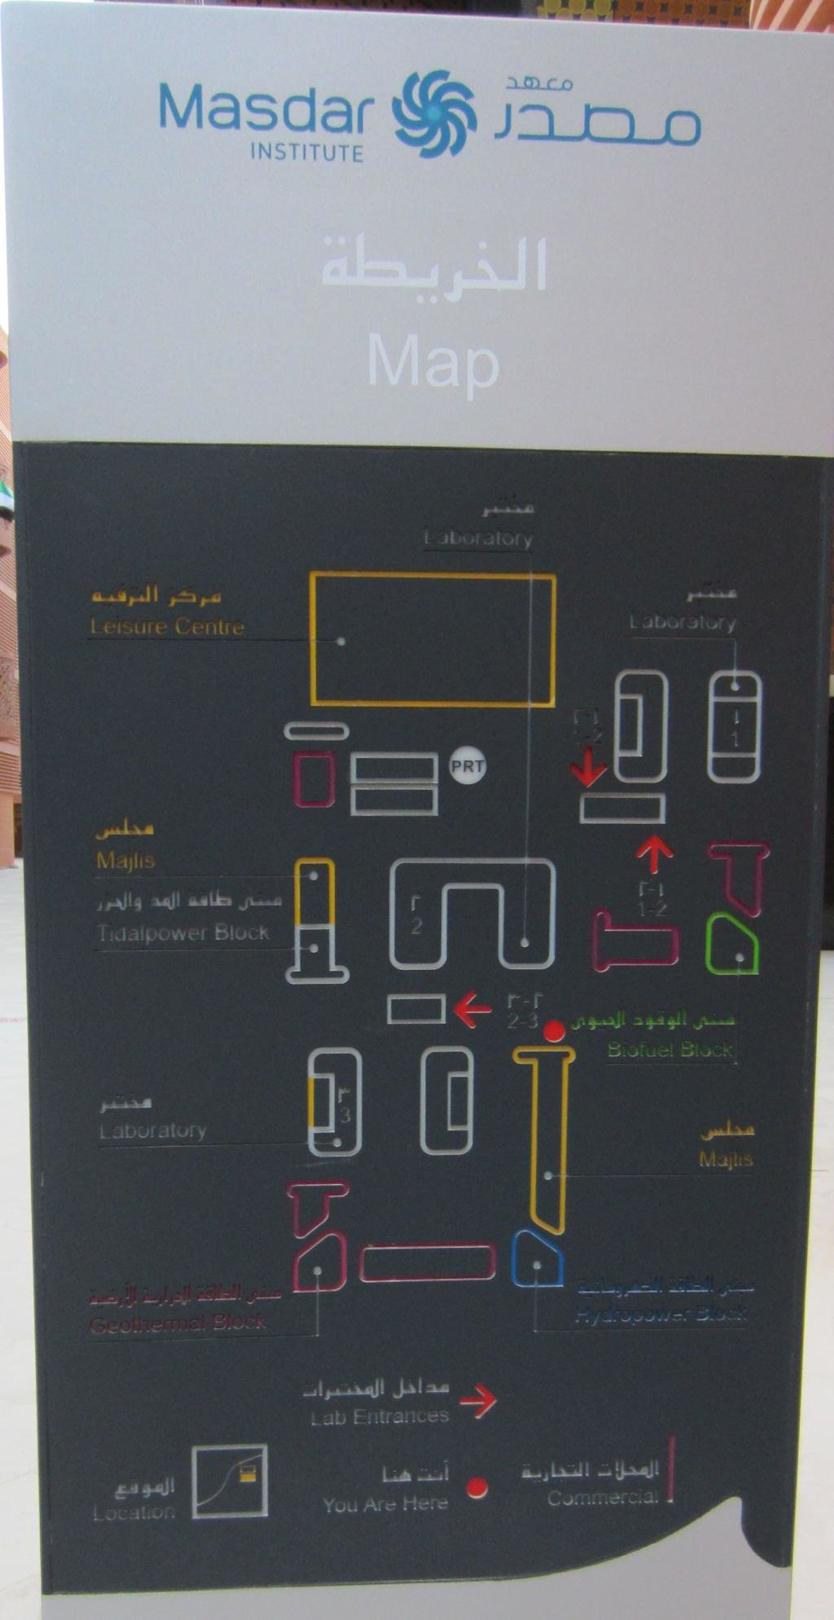 Masdar
INSTITUTE
معهد
مصدر
الخريطة
Map
مختبر
Laboratory
مركز الترفيه
Leisure Centre
مختبر
Laboratory
١
1
PRT
مجلس
Majlis
مبنى طاقة المد والجزر
Tidalpower Block
٢
2
١-٢
1-2
٢-٣
2-3
مبنى الوقود الحيوي
Biofuel Block
مختبر
Laboratory
٣
3
مجلس
Majlis
مبنى الطاقة الحرارية الأرضية
Geothermal Block
مبنى الطاقة الكهرومائية
Hydropower Block
مداخل المختبرات
Lab Entrances
الموقع
Location
أنت هنا
You Are Here
المحلات التجارية
Commercial